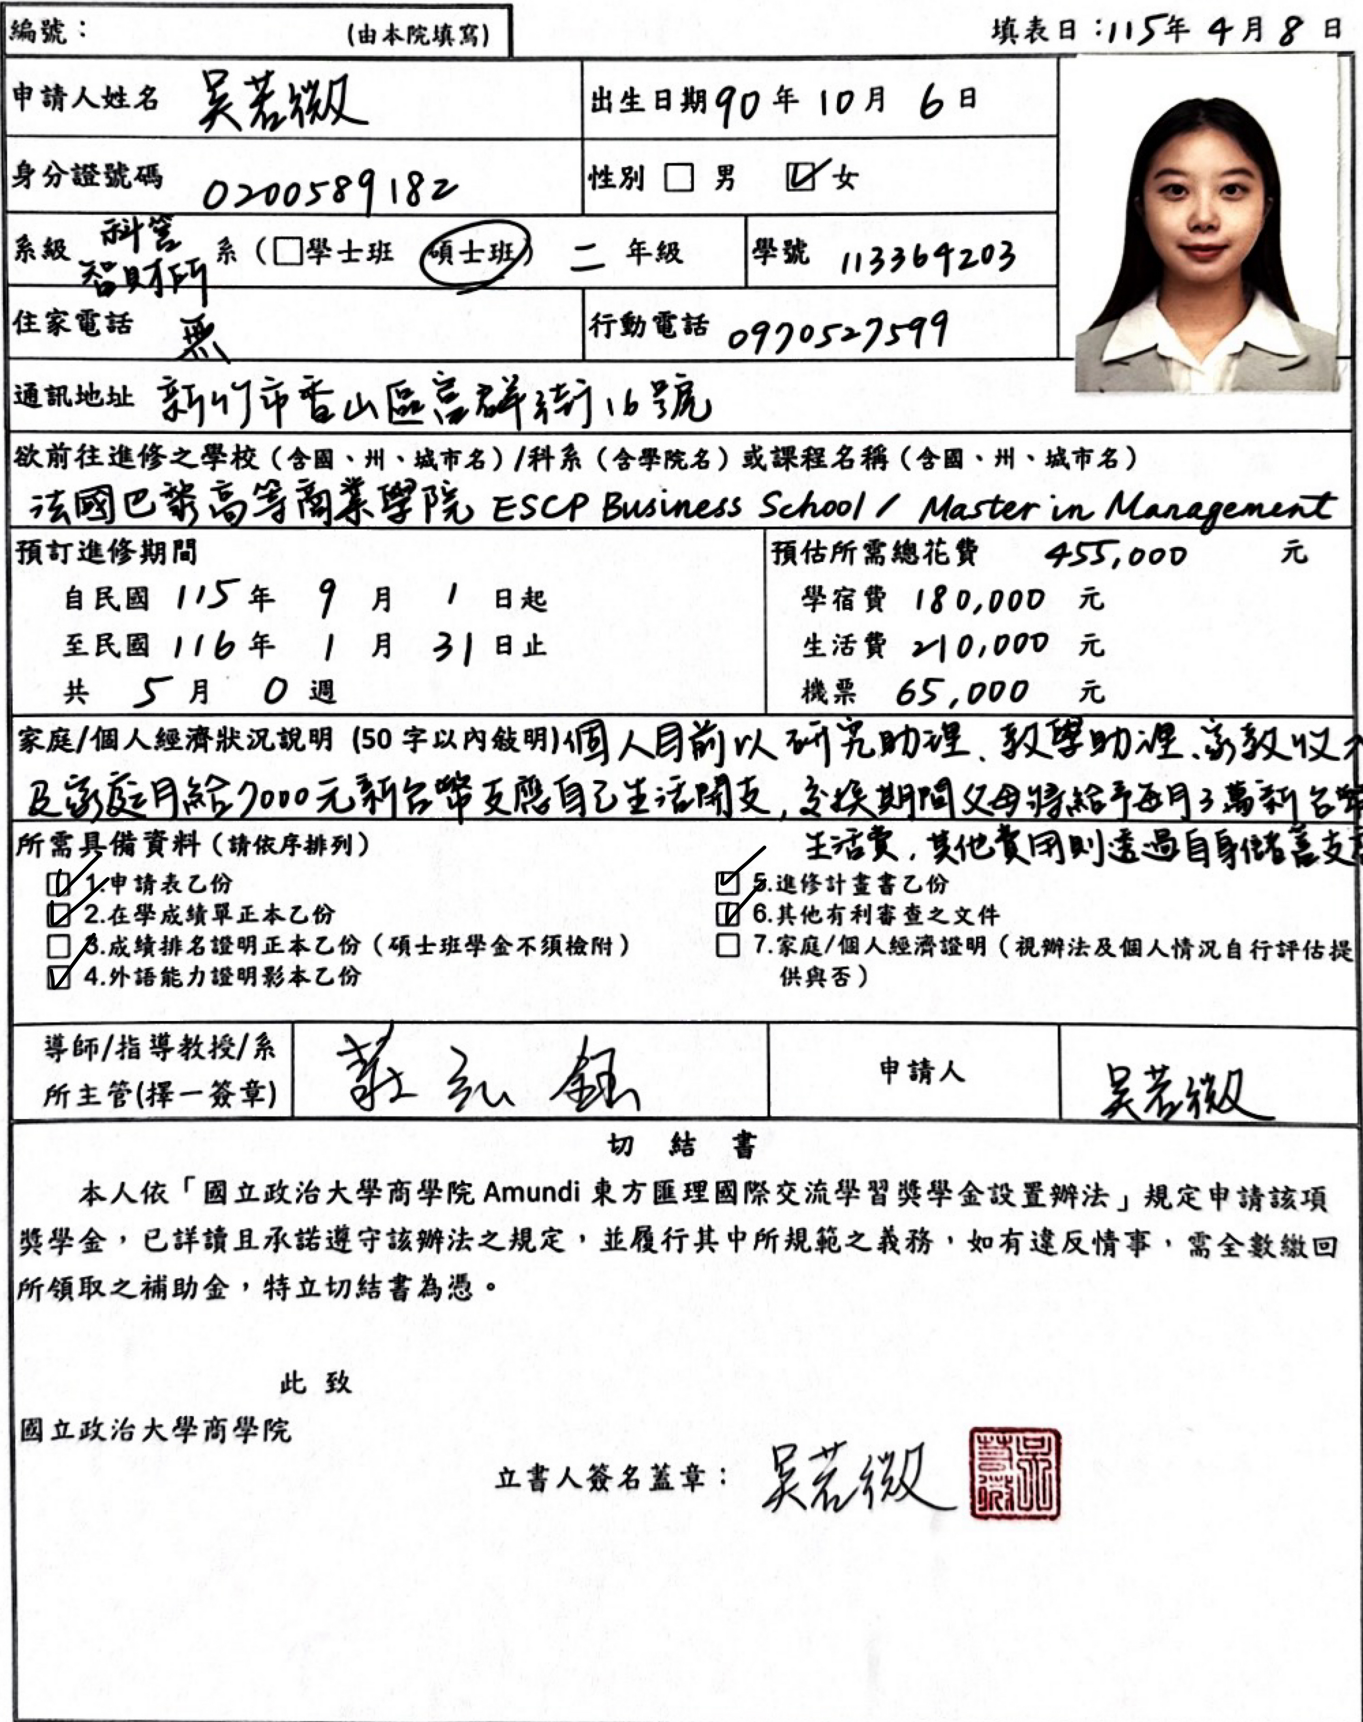 編號：　　　　(由本院填寫)　　　　填表日：115年 4月 8日
申請人姓名 吳若微　　出生日期 90年 10月 6日
身分證號碼 0200589182　　性別 □ 男 ☑ 女
系級 科管智財所 系（□學士班 碩士班）二 年級　　學號 113364203
住家電話 無　　行動電話 0970527599
通訊地址 新竹市香山區富群街16號
欲前往進修之學校（含國、州、城市名）/科系（含學院名）或課程名稱（含國、州、城市名）
法國巴黎高等商業學院 ESCP Business School / Master in Management
預訂進修期間　　預估所需總花費 455,000 元
自民國 115年 9月 1日起　　學宿費 180,000 元
至民國 116年 1月 31日止　　生活費 210,000 元
共 5月 0週　　機票 65,000 元
家庭/個人經濟狀況說明 (50字以內敍明)個人目前以研究助理、教學助理、家教收入
及家庭月給7000元新台幣支應自己生活開支，交換期間父母將給予每月3萬新台幣
生活費，其他費用則透過自身儲蓄支
所需具備資料（請依序排列）
☑ 1.申請表乙份　　☑ 5.進修計畫書乙份
☑ 2.在學成績單正本乙份　　☑ 6.其他有利審查之文件
□ 3.成績排名證明正本乙份（碩士班學金不須檢附）　　□ 7.家庭/個人經濟證明（視辦法及個人情況自行評估提
☑ 4.外語能力證明影本乙份　　供與否）
導師/指導教授/系
所主管(擇一簽章)　　莊弘鈺　　申請人　　吳若微
切 結 書
本人依「國立政治大學商學院 Amundi 東方匯理國際交流學習獎學金設置辦法」規定申請該項
獎學金，已詳讀且承諾遵守該辦法之規定，並履行其中所規範之義務，如有違反情事，需全數繳回
所領取之補助金，特立切結書為憑。
此 致
國立政治大學商學院
立書人簽名蓋章： 吳若微